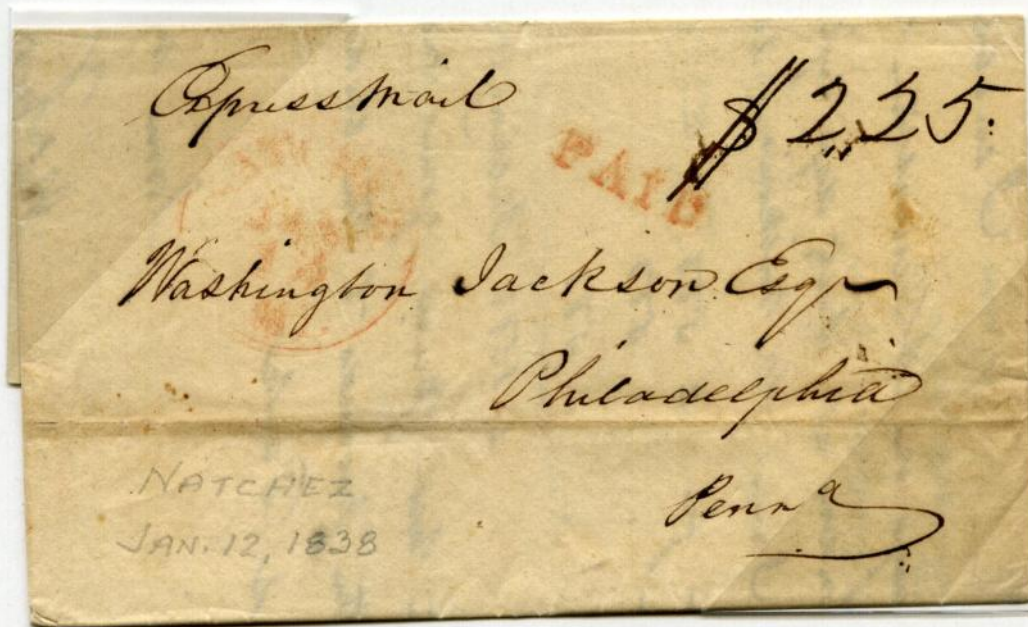 Express Mail
$ 2,25.
PAID
JAN
Washington Jackson Esqr
Philadelphia
Penna
NATCHEZ
JAN. 12, 1838